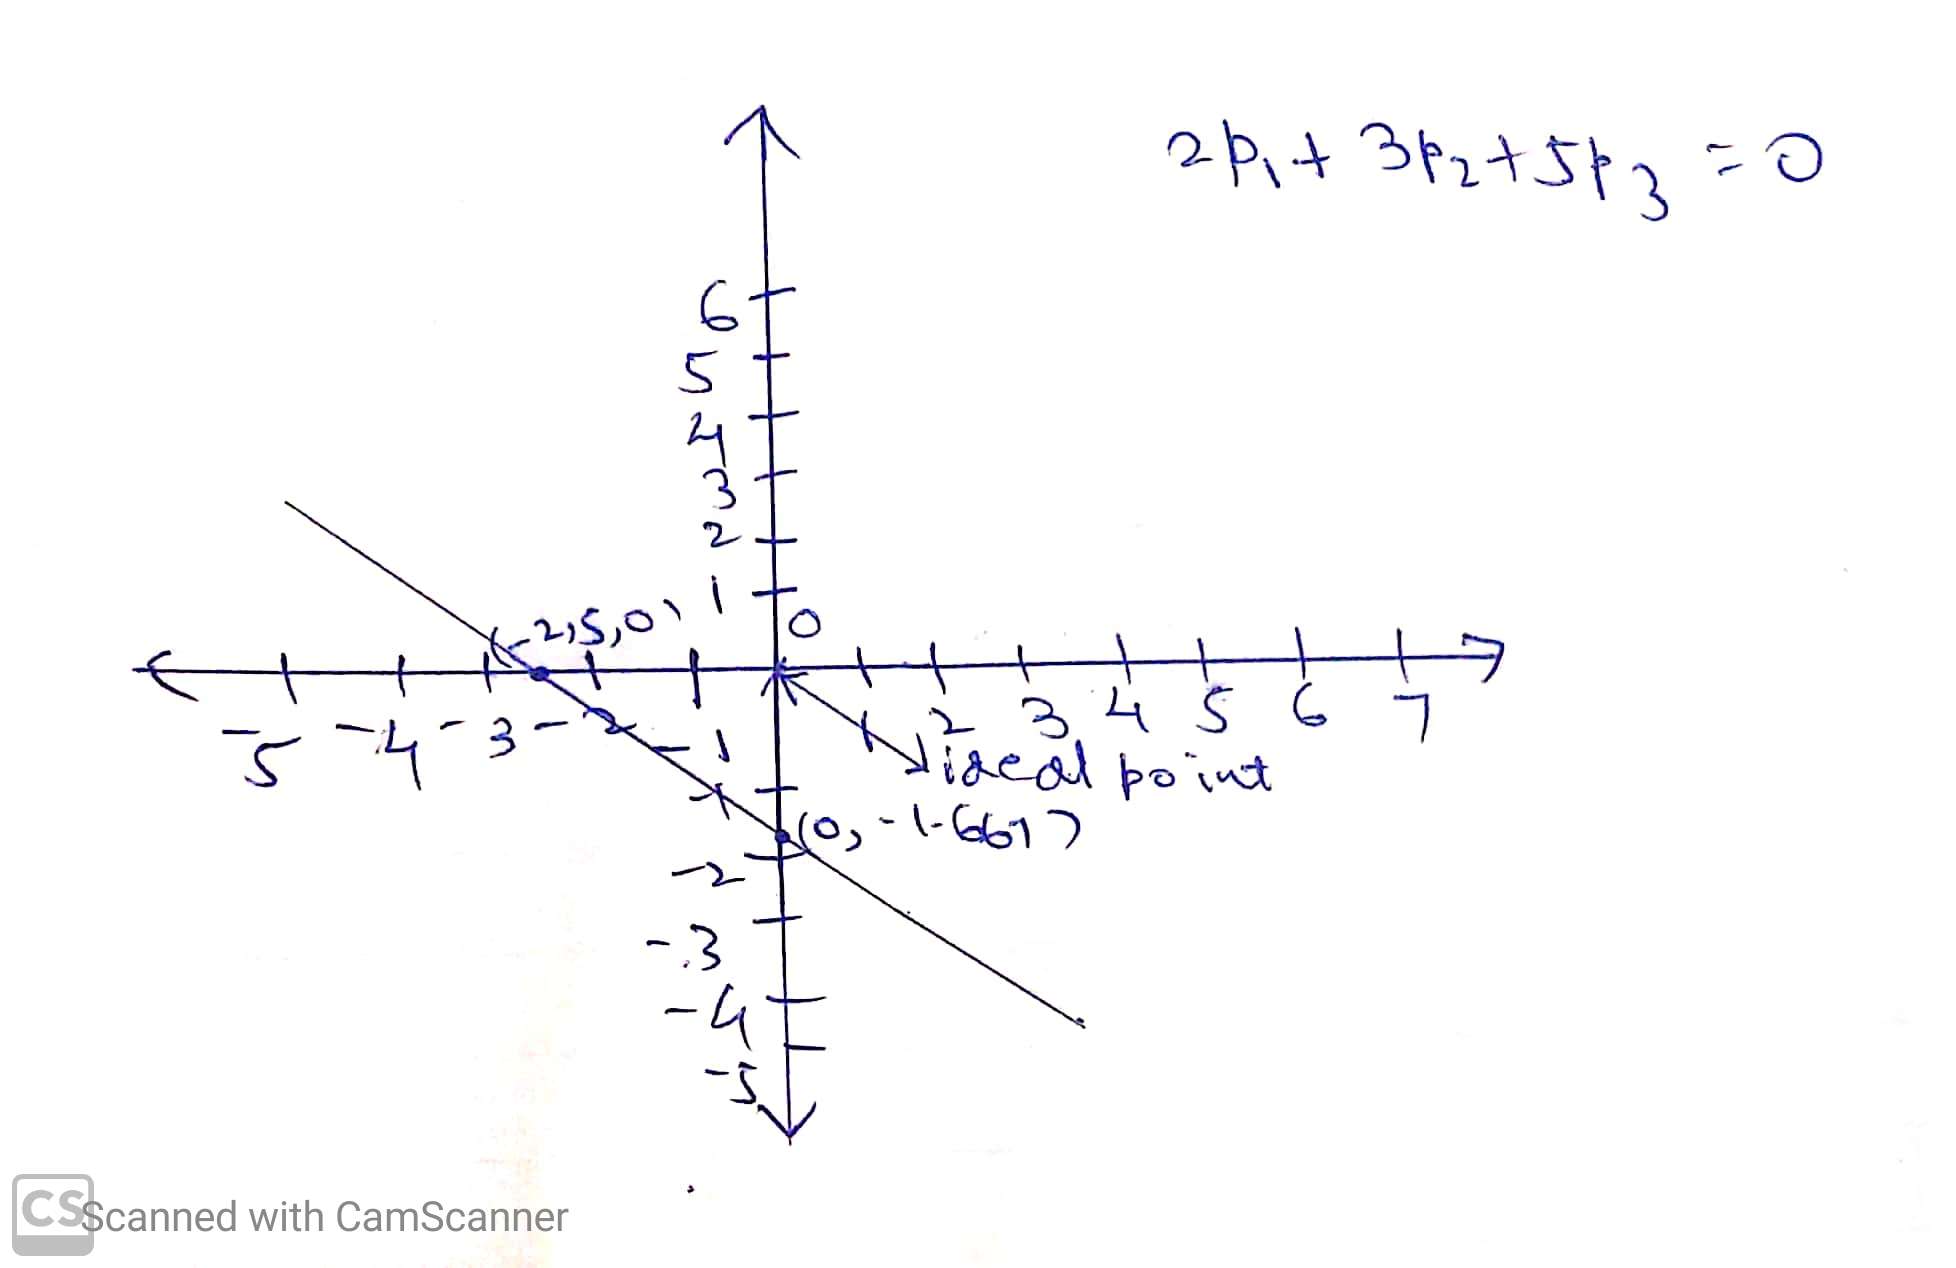 2p₁ + 3p₂ + 5p₃ = 0
6
5
4
3
2
1
0
(-2,5,0)
-5 -4 -3 -2 -1 1 2 3 4 5 6 7
ideal point
(0, -1.667)
-2
-3
-4
-5
CS Scanned with CamScanner